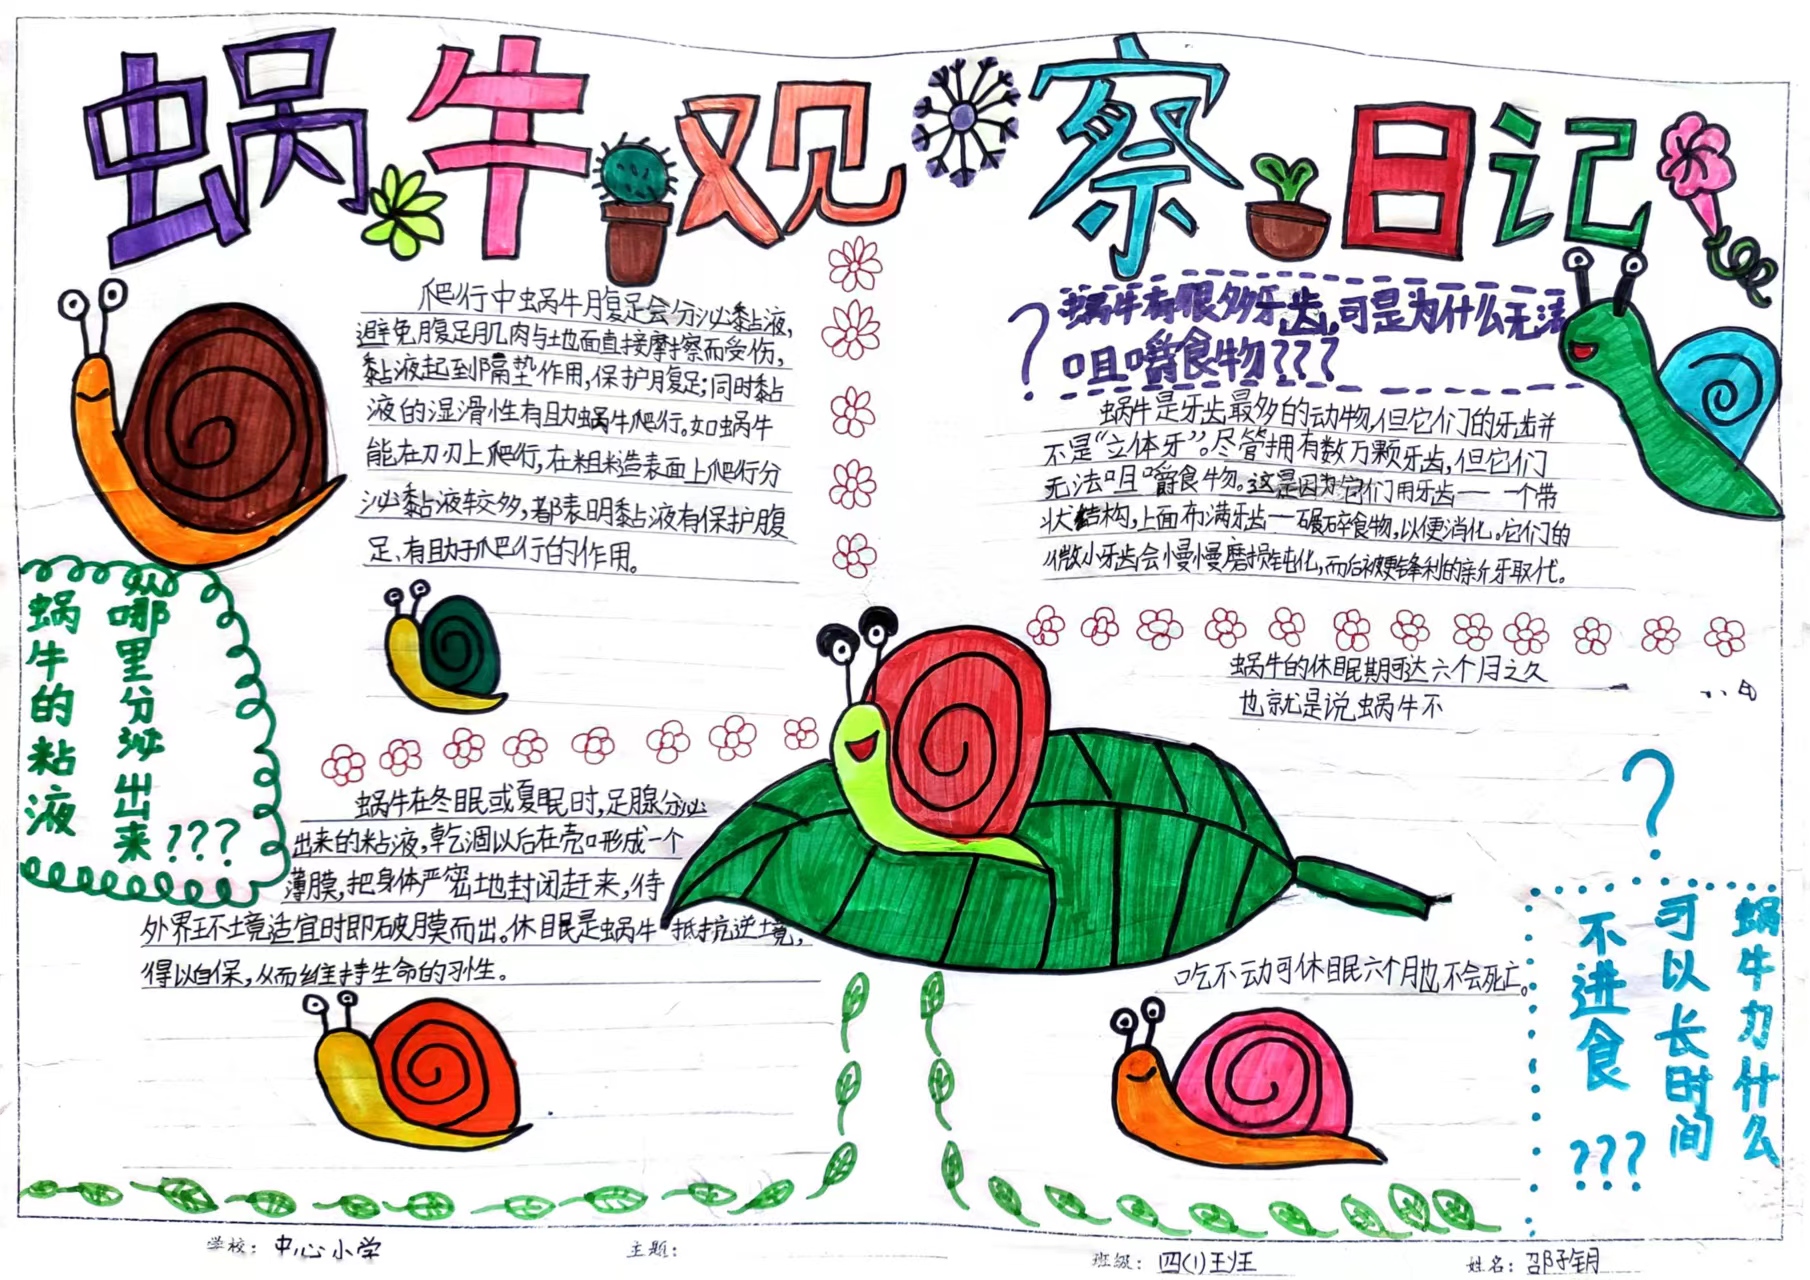 蜗牛观察日记
爬行中蜗牛腹足会分泌黏液,
避免腹足肌肉与地面直接摩擦而受伤,
黏液起到隔垫作用,保护腹足;同时黏
液的湿滑性有助蜗牛爬行。如蜗牛
能在刀刃上爬行,在粗糙表面上爬行分
泌黏液较多,都表明黏液有保护腹
足、有助于爬行的作用。
蜗牛的粘液
哪里分泌出来
???
蜗牛在冬眠或夏眠时,足腺分泌
出来的粘液,乾涸以后在壳口形成一个
薄膜,把身体严密地封闭起来,待
外界环境适宜时即破膜而出。休眠是蜗牛抵抗逆境,
得以自保,从而维持生命的习性。
? 蜗牛有很多牙齿,可是为什么无法
咀嚼食物???
蜗牛是牙齿最多的动物,但它们的牙齿并
不是“立体牙”。尽管拥有数万颗牙齿,但它们
无法咀嚼食物。这是因为它们用牙齿一一个带
状结构,上面布满牙齿一碾碎食物,以便消化。它们的
微小牙齿会慢慢磨损钝化,而后被更锋利的新牙取代。
蜗牛的休眠期可达六个月之久
也就是说蜗牛不
吃不动可休眠六个月也不会死亡。
?
蜗牛为什么
可以长时间
不进食
???
学校: 中心小学
主题:
班级: 四(1)班
姓名: 邵子钥